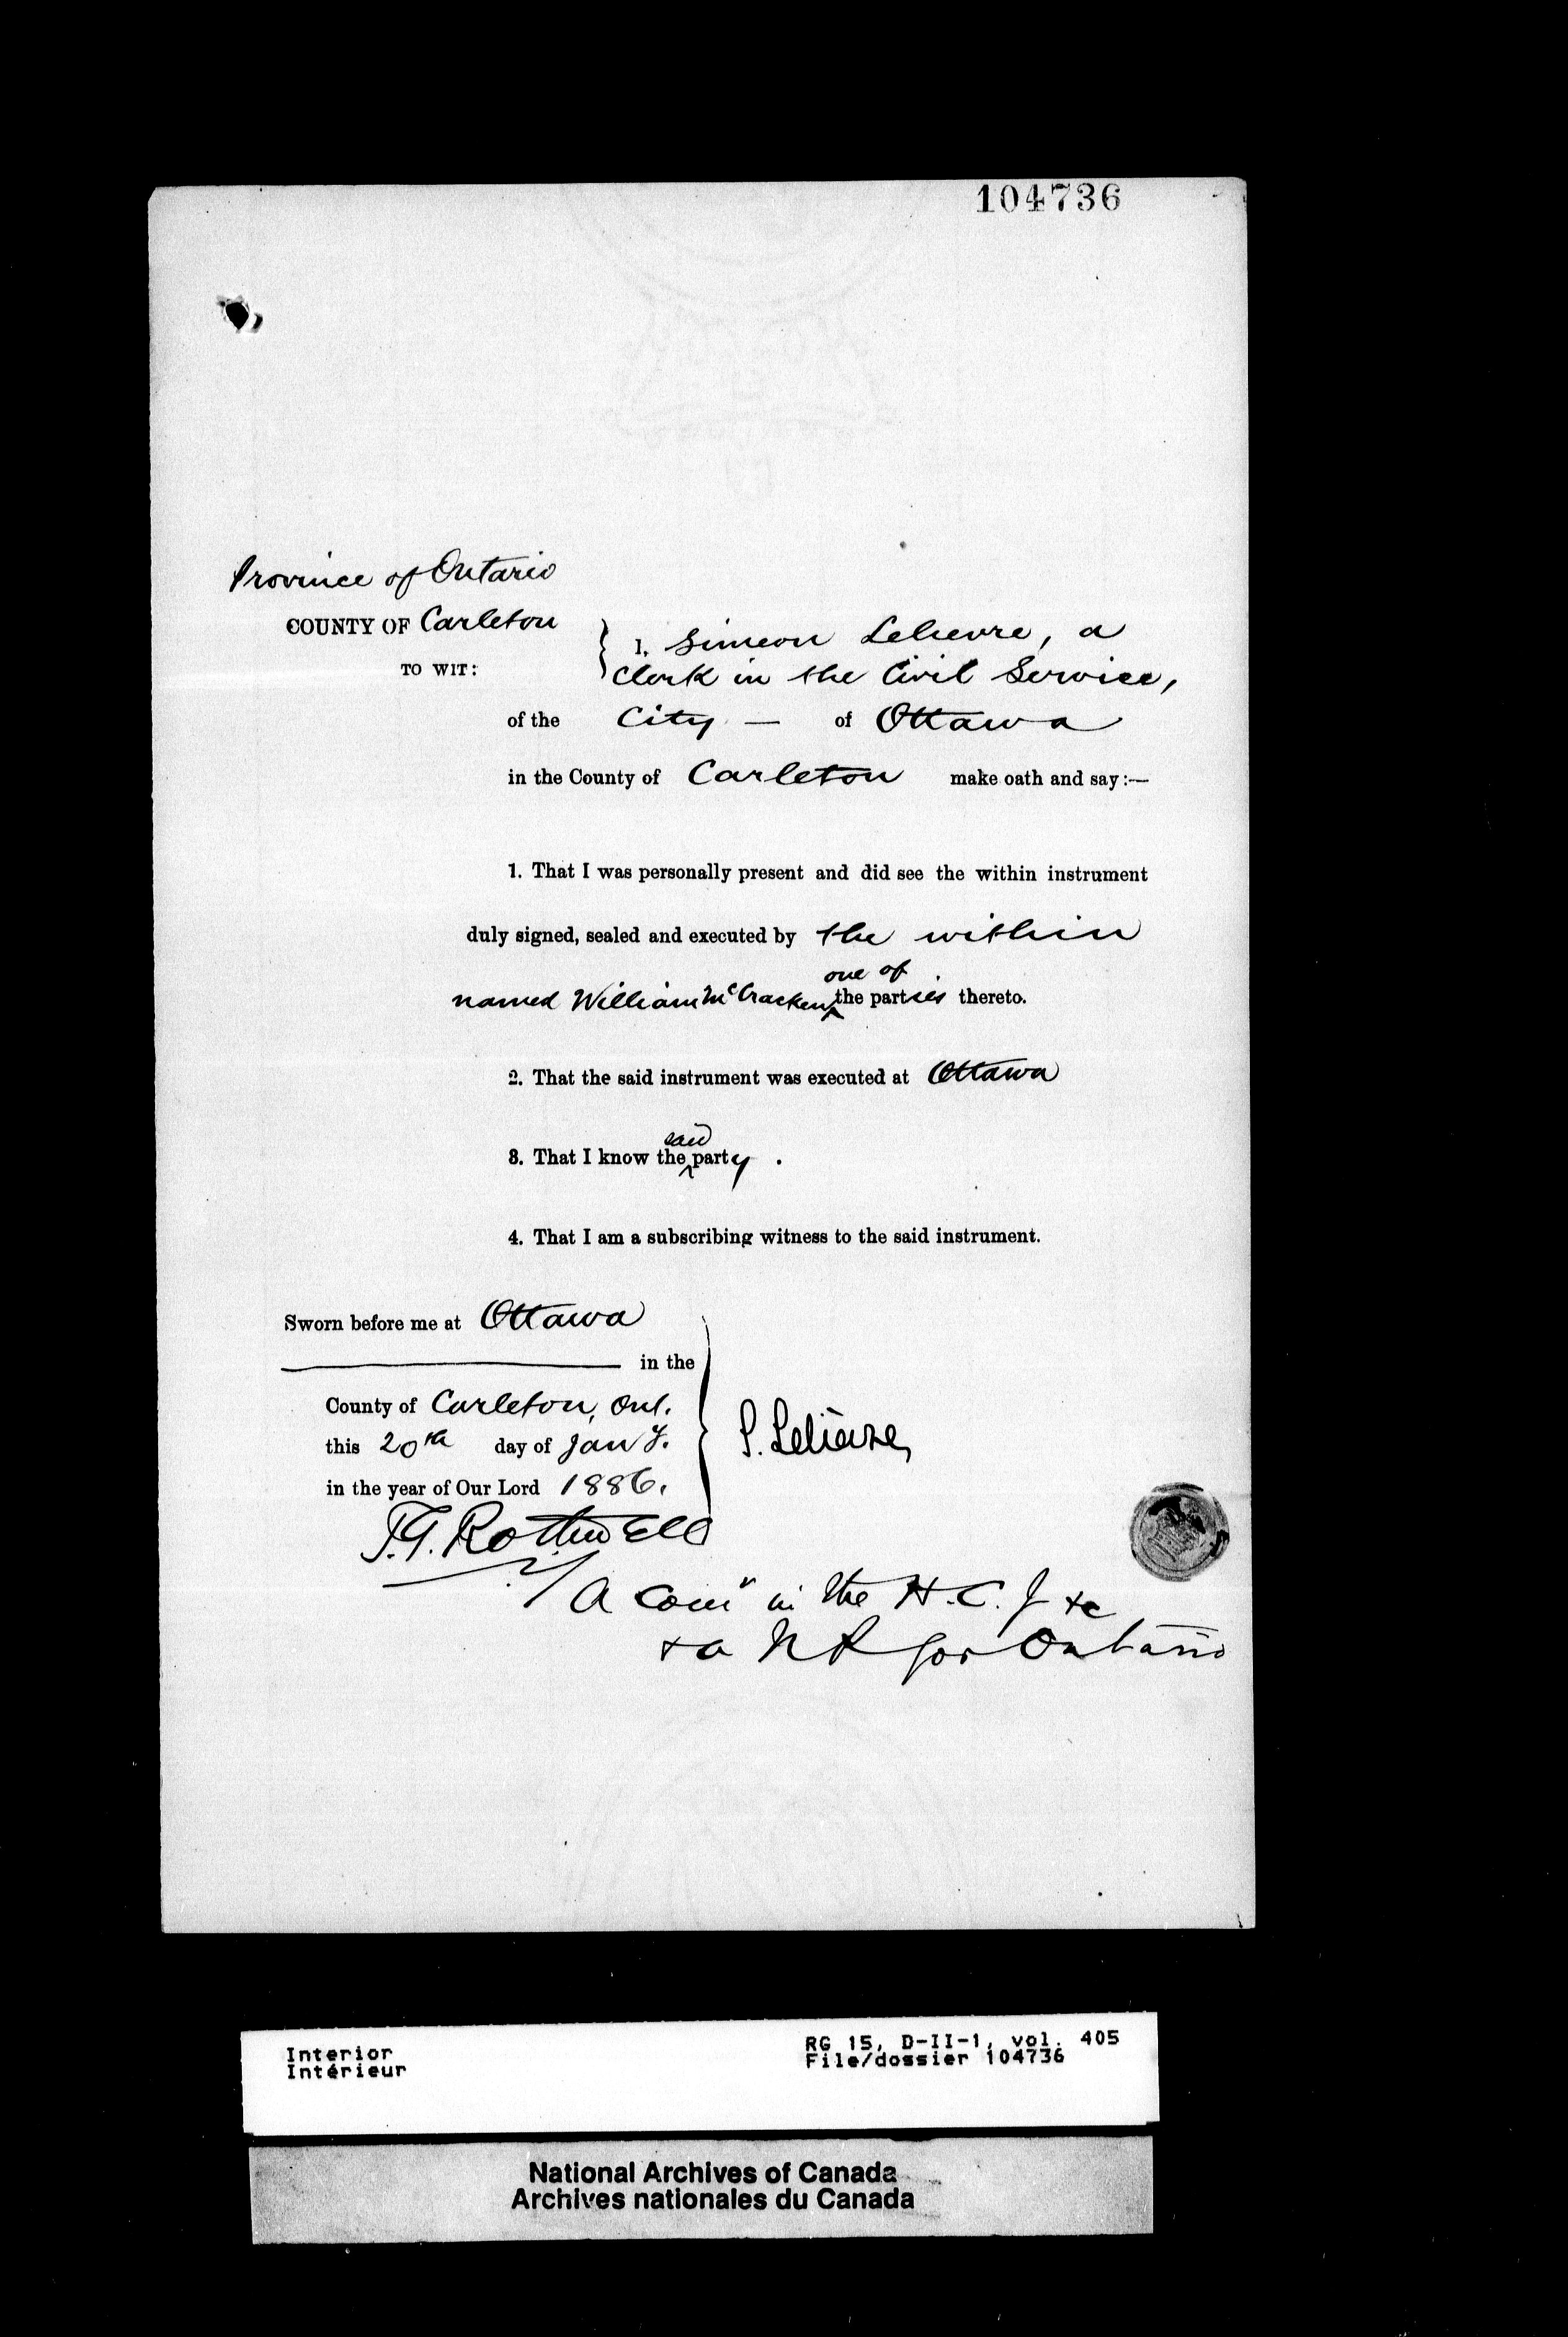 104736
Province of Ontario
COUNTY OF Carleton
TO WIT:
I, Simeon Lelievre, a
Clerk in the Civil Service,
of the City — of Ottawa
in the County of Carleton make oath and say:—
1. That I was personally present and did see the within instrument
duly signed, sealed and executed by the within
one of
named William McCracken the parties thereto.
2. That the said instrument was executed at Ottawa
said
3. That I know the party .
4. That I am a subscribing witness to the said instrument.
Sworn before me at Ottawa
in the
County of Carleton, Ont.
this 20th day of Jany.
in the year of Our Lord 1886.
S. Lelievre
T.G. Rothwell
A Comr in the H.C.J &c
& a NP for Ontario
Interior
Intérieur
RG 15, D-II-1, vol. 405
File/dossier 104736
National Archives of Canada
Archives nationales du Canada